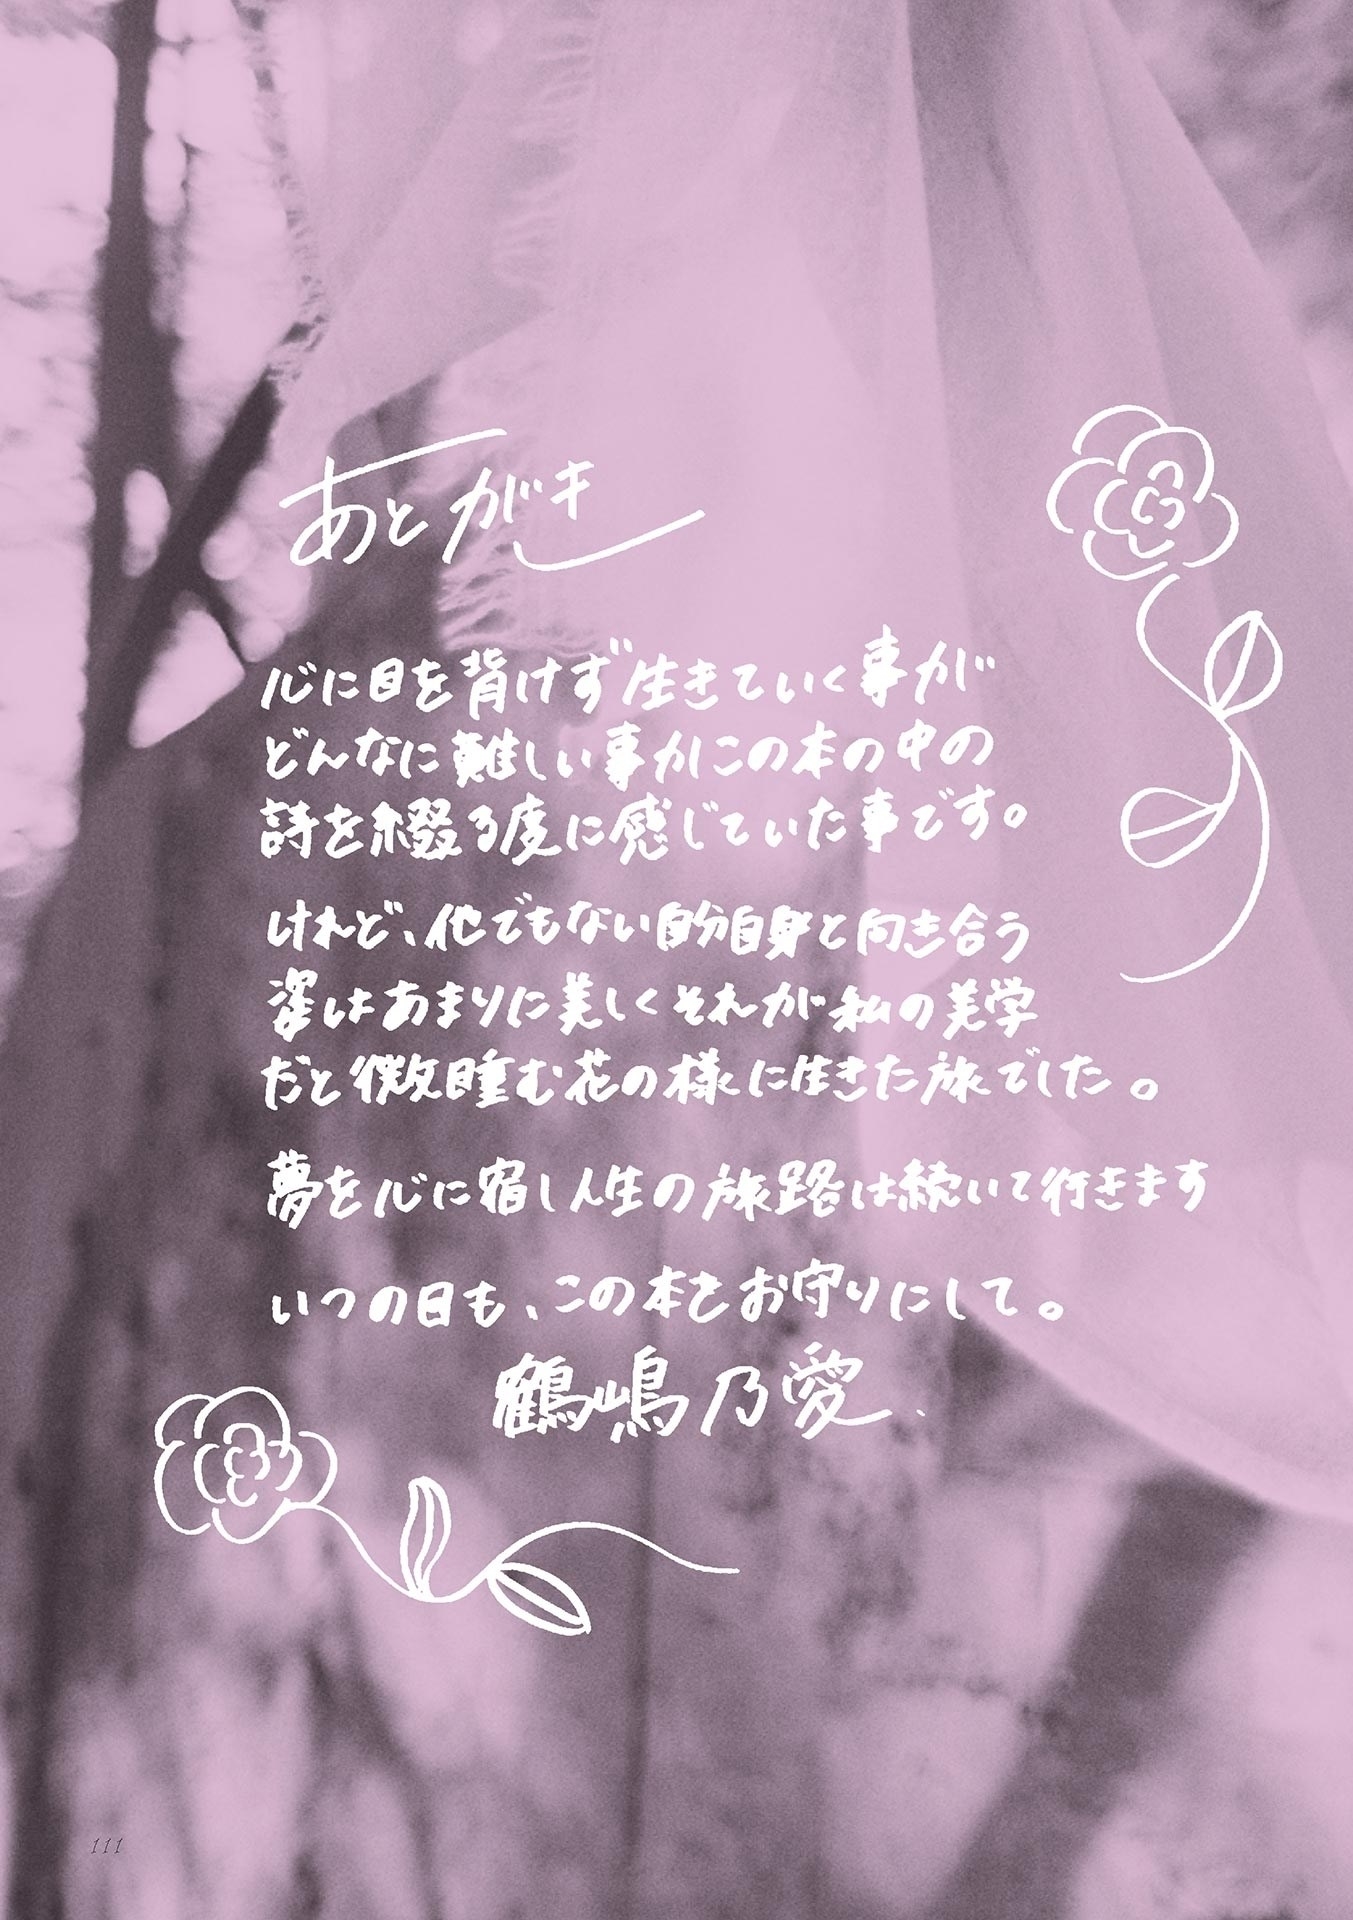 あとがき
心に目を背けず生きていく事が
どんなに難しい事かこの本の中の
詩を綴る度に感じていた事です。
けれど、他でもない自分自身と向き合う
姿はあまりに美しくそれが私の美学
だと微睡む花の様に生きた旅でした。
夢を心に宿し人生の旅路は続いて行きます
いつの日も、この本をお守りにして。
鶴嶋乃愛
111